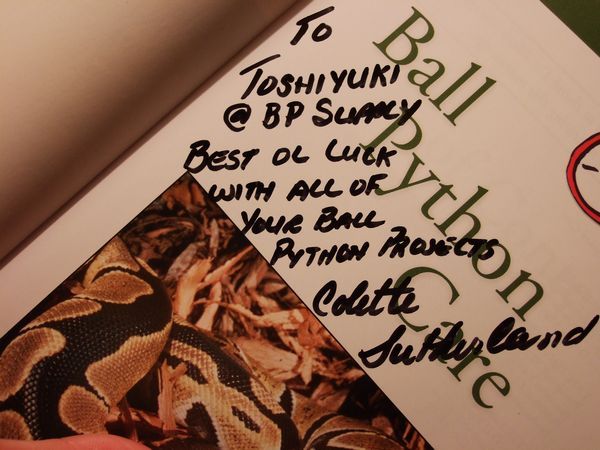 To
TOSHIYUKI
@ BP SUPPLY
BEST OL LUCK
WITH ALL OF
YOUR BALL
PYTHON PROJECTS
Colette
Sutherland
Ball
Python
Care